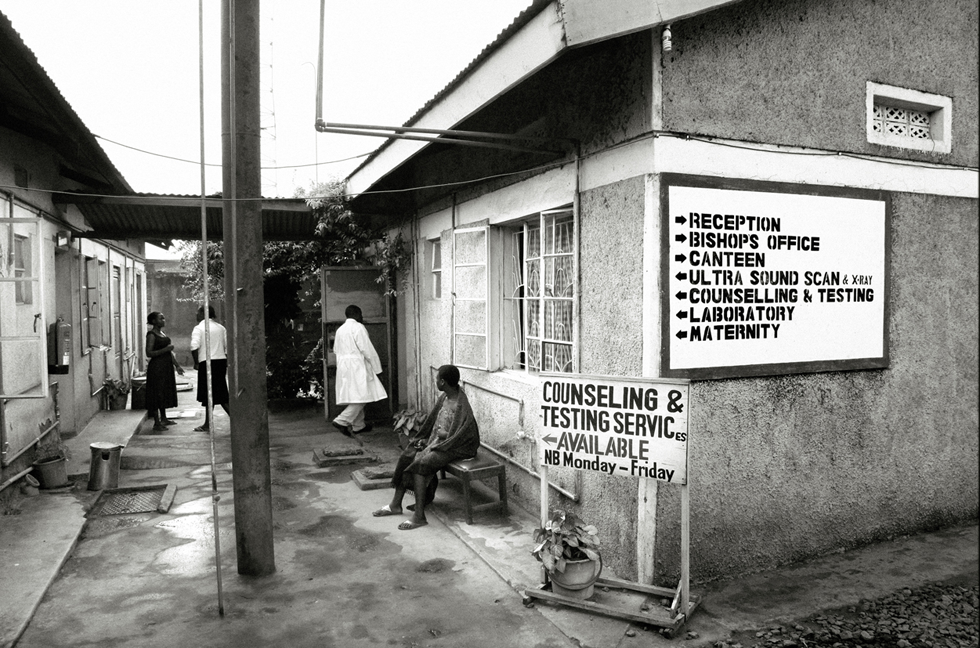 ➡RECEPTION
➡BISHOPS OFFICE
➡CANTEEN
⬅ULTRA SOUND SCAN & X-RAY
⬅COUNSELLING & TESTING
⬅LABORATORY
⬅MATERNITY
COUNSELING &
TESTING SERVICES
←AVAILABLE
NB Monday – Friday